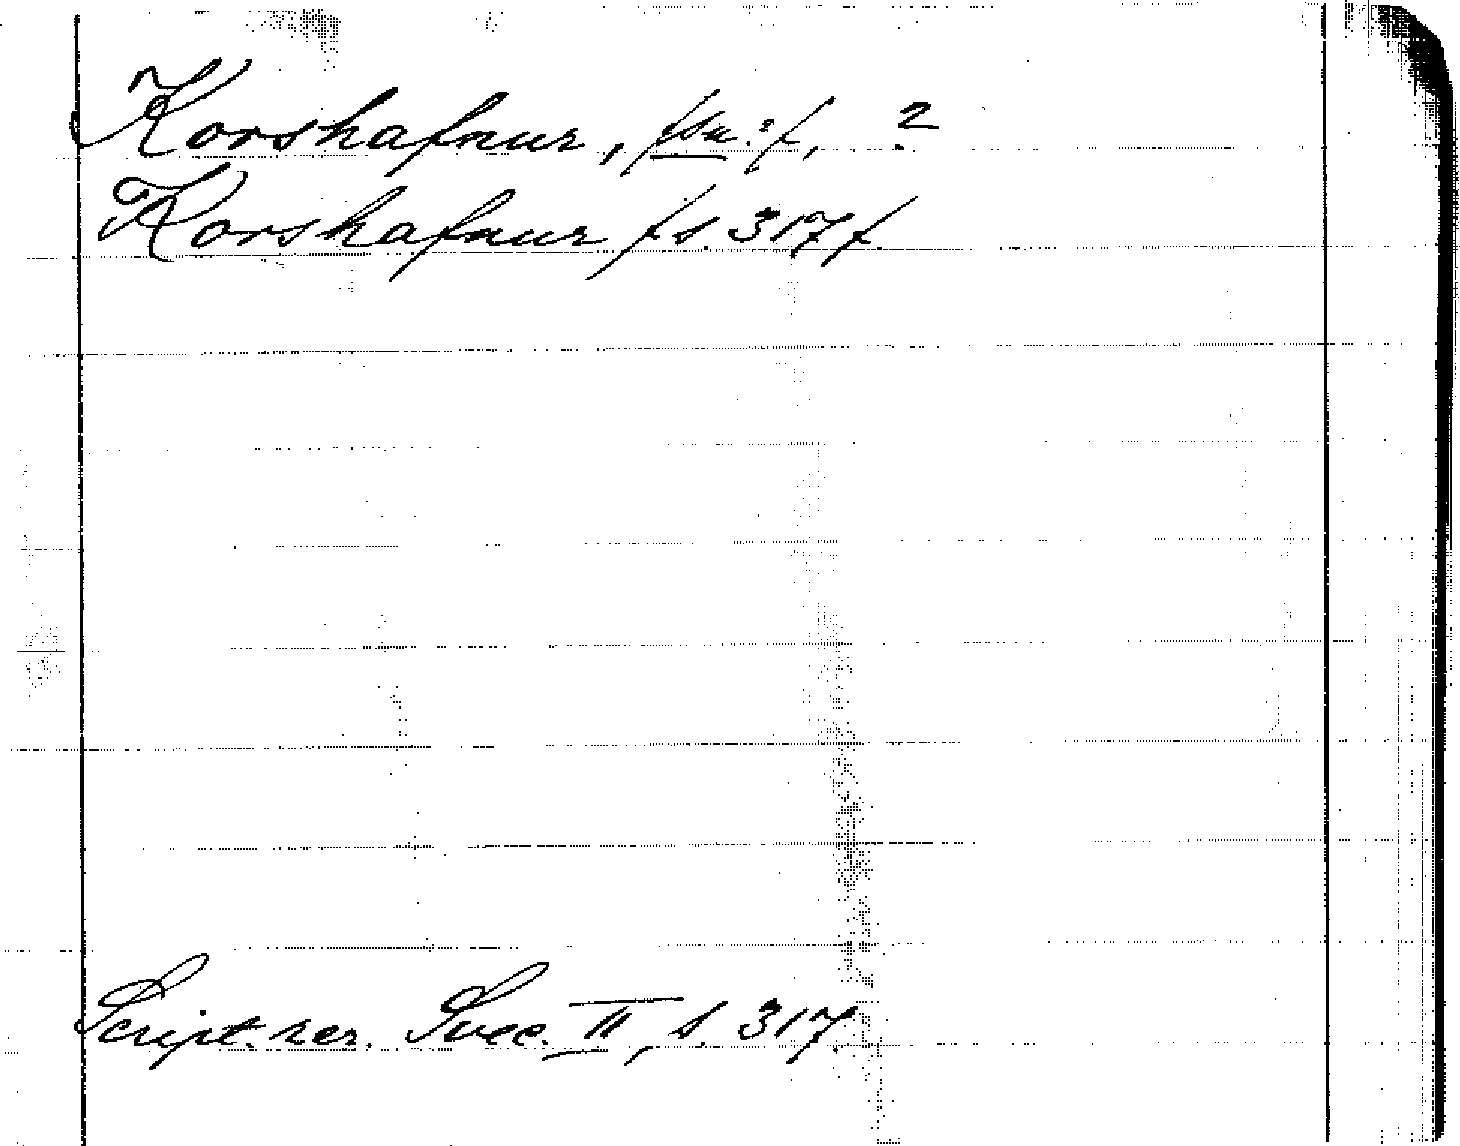 Korshafnur, /sm.?/, ?
Korshafnur /s. 317/.
Script. rer. Svec. II, s. 317.